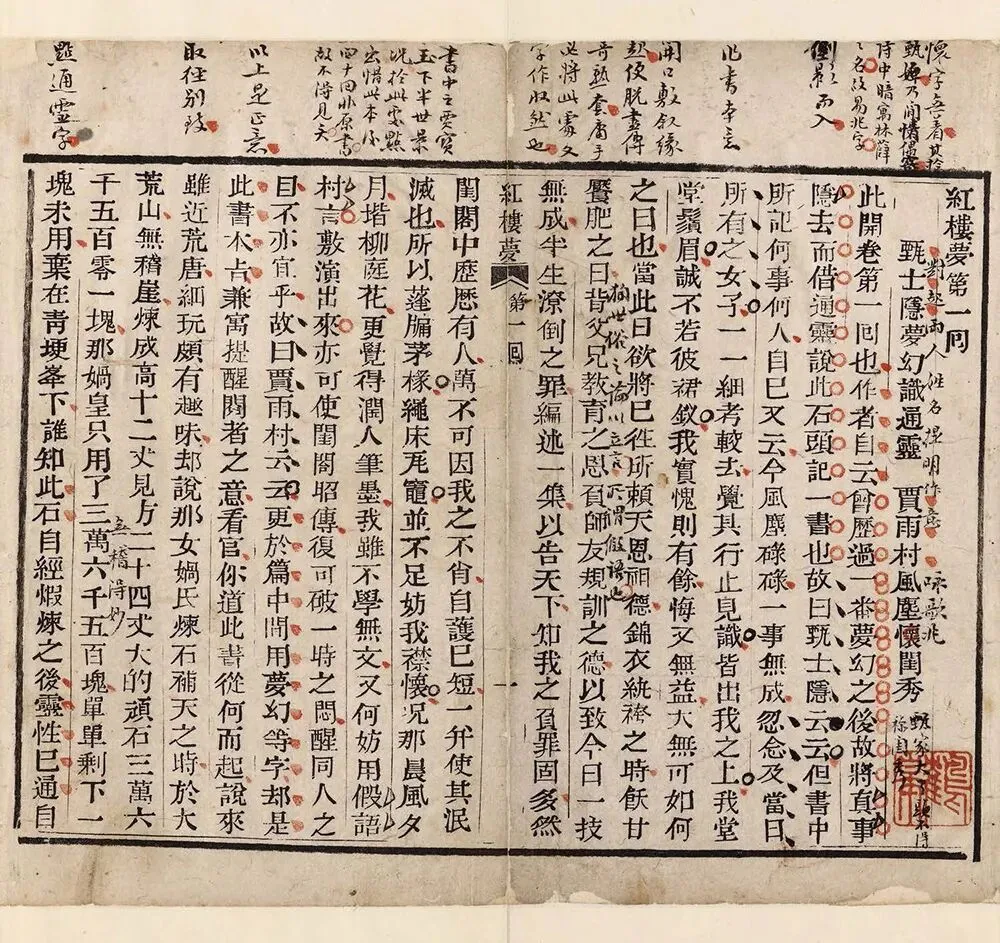 紅樓夢第一囘
甄士隱夢幻識通靈　賈雨村風塵懷閨秀
此開卷第一囘也作者自云曾歷過一番夢幻之後故將真事
隱去而借通靈說此石頭記一書也故曰甄士隱云云但書中
所記何事何人自己又云今風塵碌碌一事無成忽念及當日
所有之女子一一細考較去覺其行止見識皆出我之上我堂
堂鬚眉誠不若彼裙釵我實愧則有餘悔又無益大無可如何
之日也當此日欲將已徃所賴天恩祖德錦衣紈袴之時飫甘
饜肥之日背父兄教育之恩負師友規訓之德以致今日一技
無成半生潦倒之罪編述一集以告天下知我之負罪固多然
紅樓夢　第一囘　一
閨閣中歷歷有人萬不可因我之不肖自護已短一并使其泯
滅也所以蓬牖茅椽繩床瓦竈並不足妨我襟懷况那晨風夕
月堦柳庭花更覺得潤人筆墨我雖不學無文又何妨用假語
村言敷演出來亦可使閨閣昭傳復可破一時之悶醒同人之
目不亦宜乎故曰賈雨村云云更於篇中間用夢幻等字却是
此書本㫖兼寓提醒閱者之意看官你道此書從何而起說來
雖近荒唐細玩頗有趣味却說那女媧氏煉石補天之時於大
荒山無稽崖煉成高十二丈見方二十四丈大的頑石三萬六
千五百零一塊那媧皇只用了三萬六千五百塊單單剩下一
塊未用棄在青埂峯下誰知此石自經煆煉之後靈性已通自
對起兩人姓名提明作意
此書本意
開口敷叙緣
起便脫盡傳
奇熟套庸手
必將此處又
字作收煞也
書中之賈寶
玉下半世景
况於此處點
出惜此本後
四十囘非原書
故不得見矣
以上是正意
取徑別致
點通靈字
無稽得妙